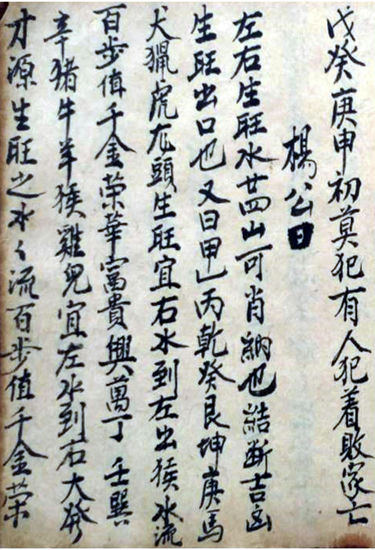 戊癸庚申初莫犯有人犯着敗家亡
楊公曰
左右生旺水廿四山可肖納也結断吉凶
生旺出口也又曰甲乚丙乾癸艮坤庚馬
犬猟虎為頭生旺宜右水到左出猴水流
百步值千金榮華富貴興萬丁壬巽
辛猪牛羊猴雞兒宜左水到右大發
才源生旺之水〻流百步值千金榮